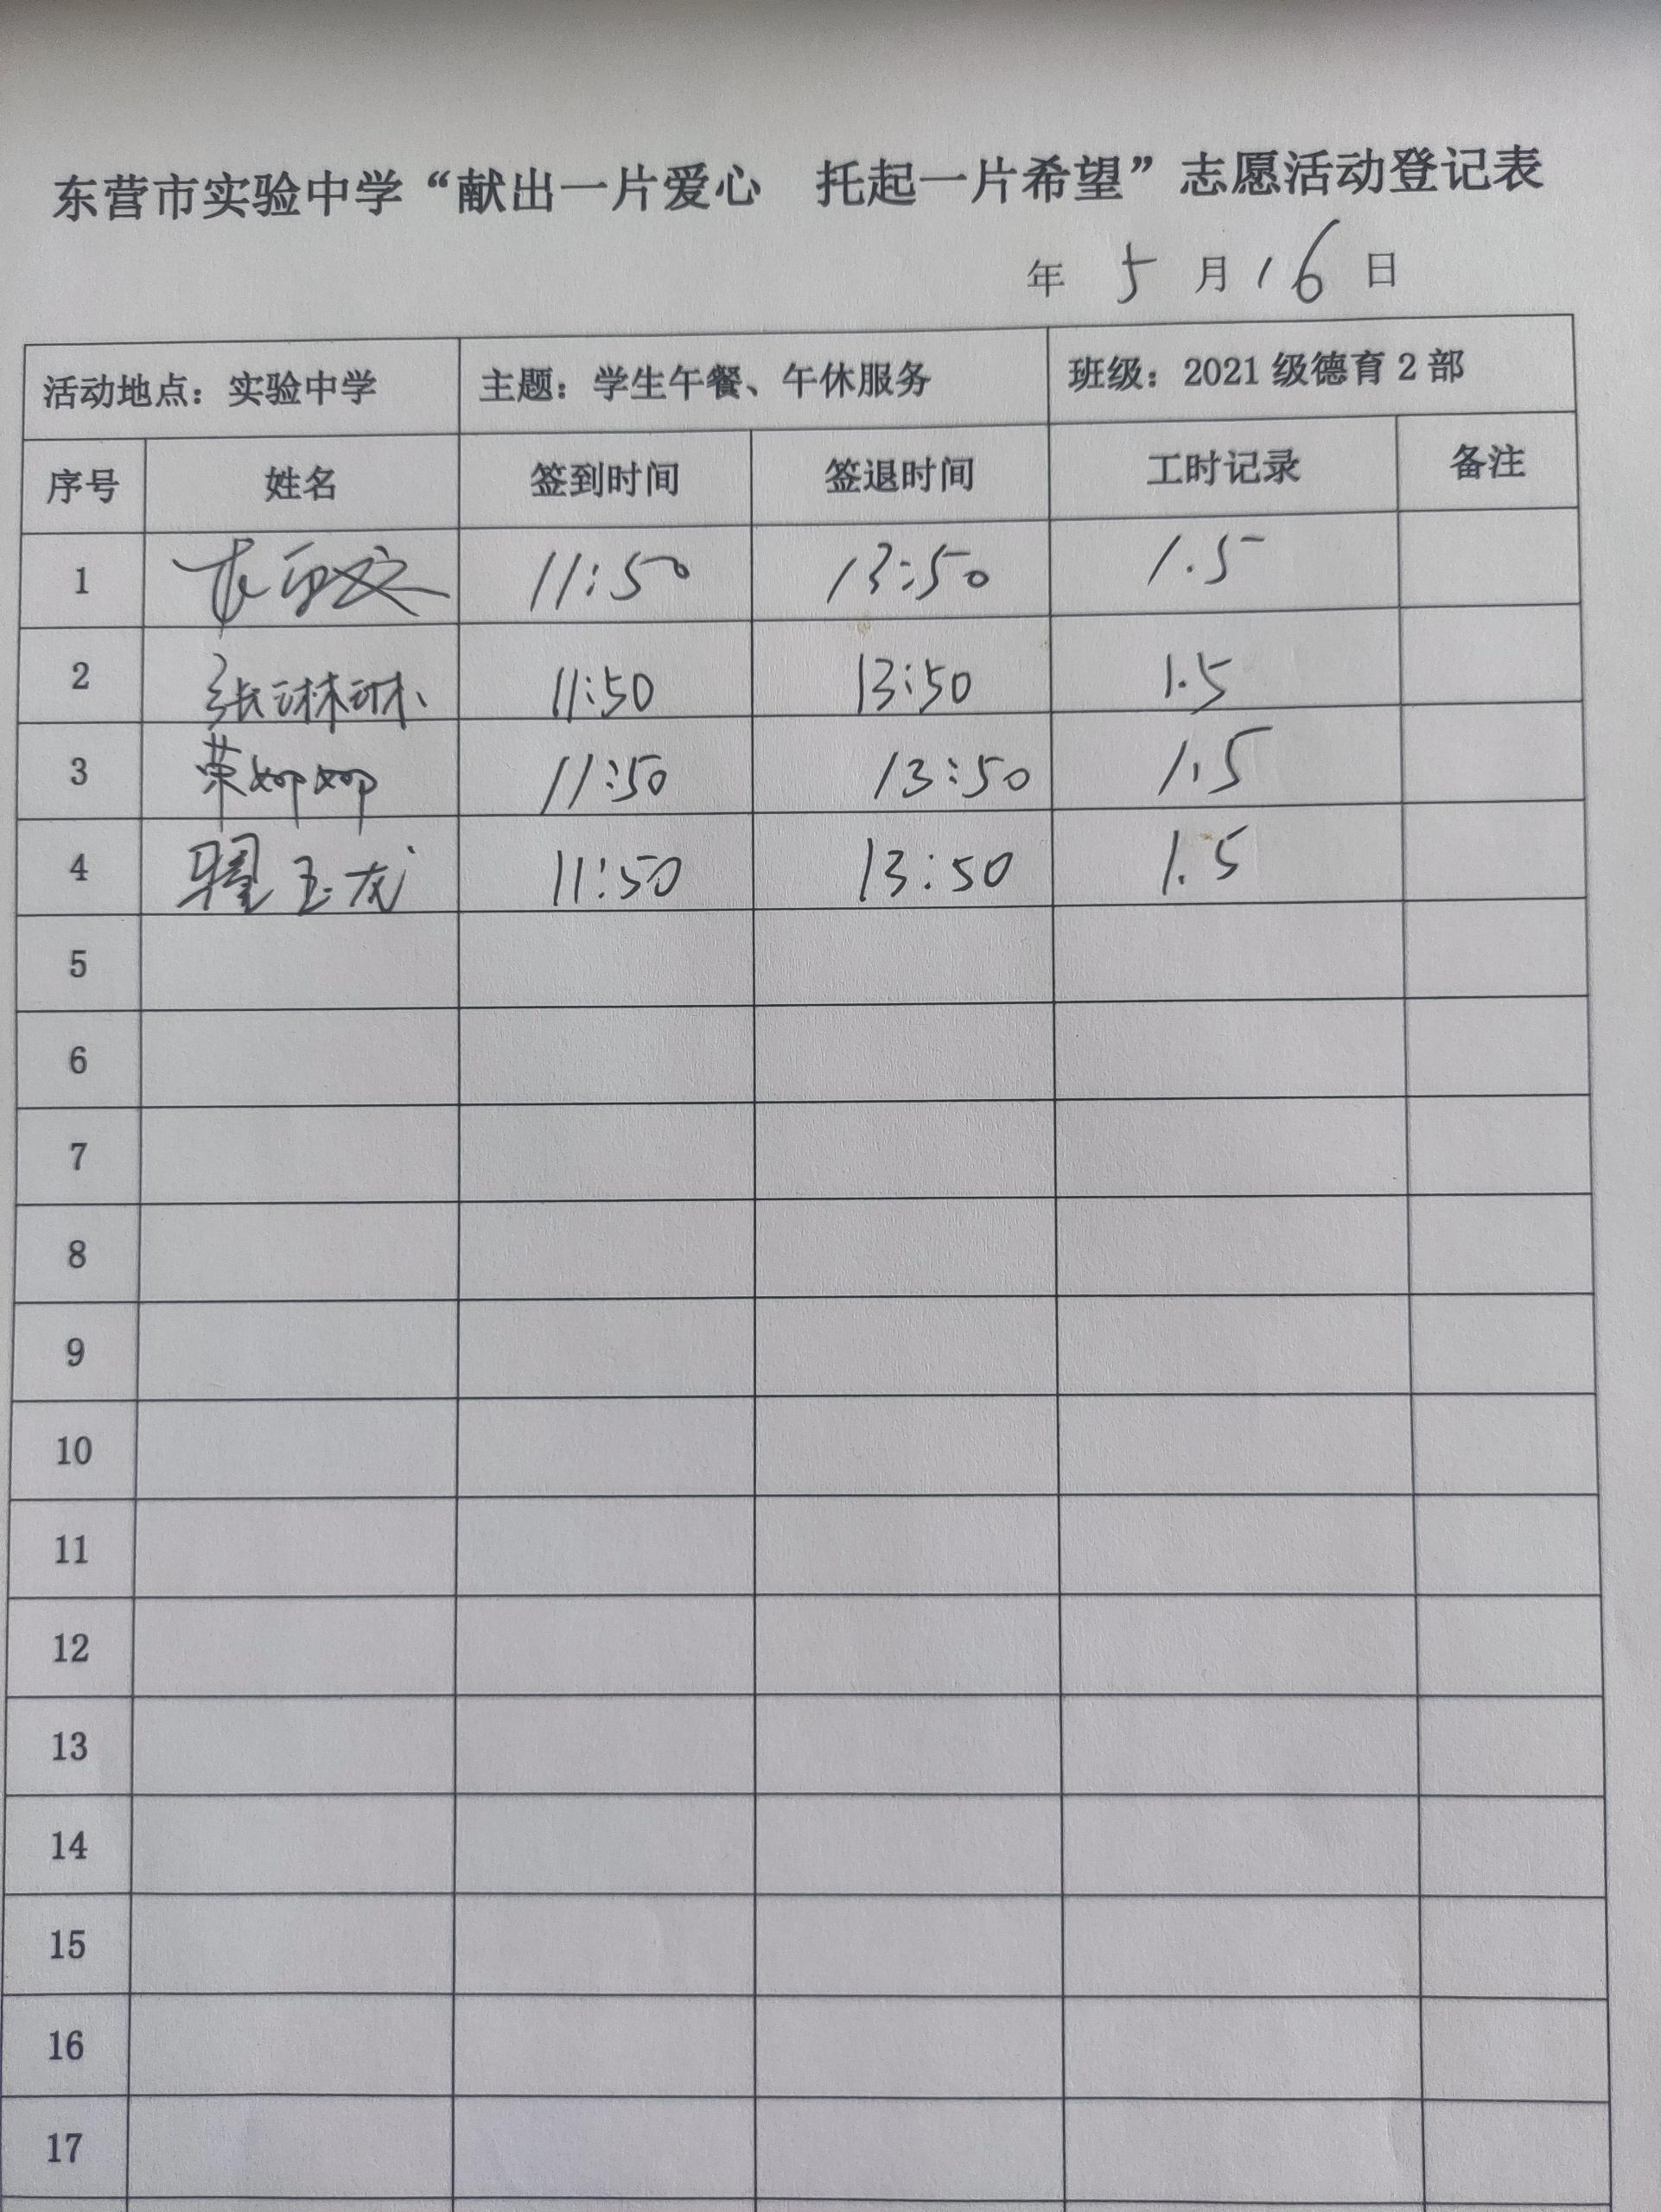 东营市实验中学“献出一片爱心 托起一片希望”志愿活动登记表
年 5 月 16 日
活动地点：实验中学 主题：学生午餐、午休服务 班级：2021级德育2部
序号 姓名 签到时间 签退时间 工时记录 备注
1 11:50 13:50 1.5
2 张琳琳 11:50 13:50 1.5
3 荣娜娜 11:50 13:50 1.5
4 翟玉龙 11:50 13:50 1.5
5
6
7
8
9
10
11
12
13
14
15
16
17